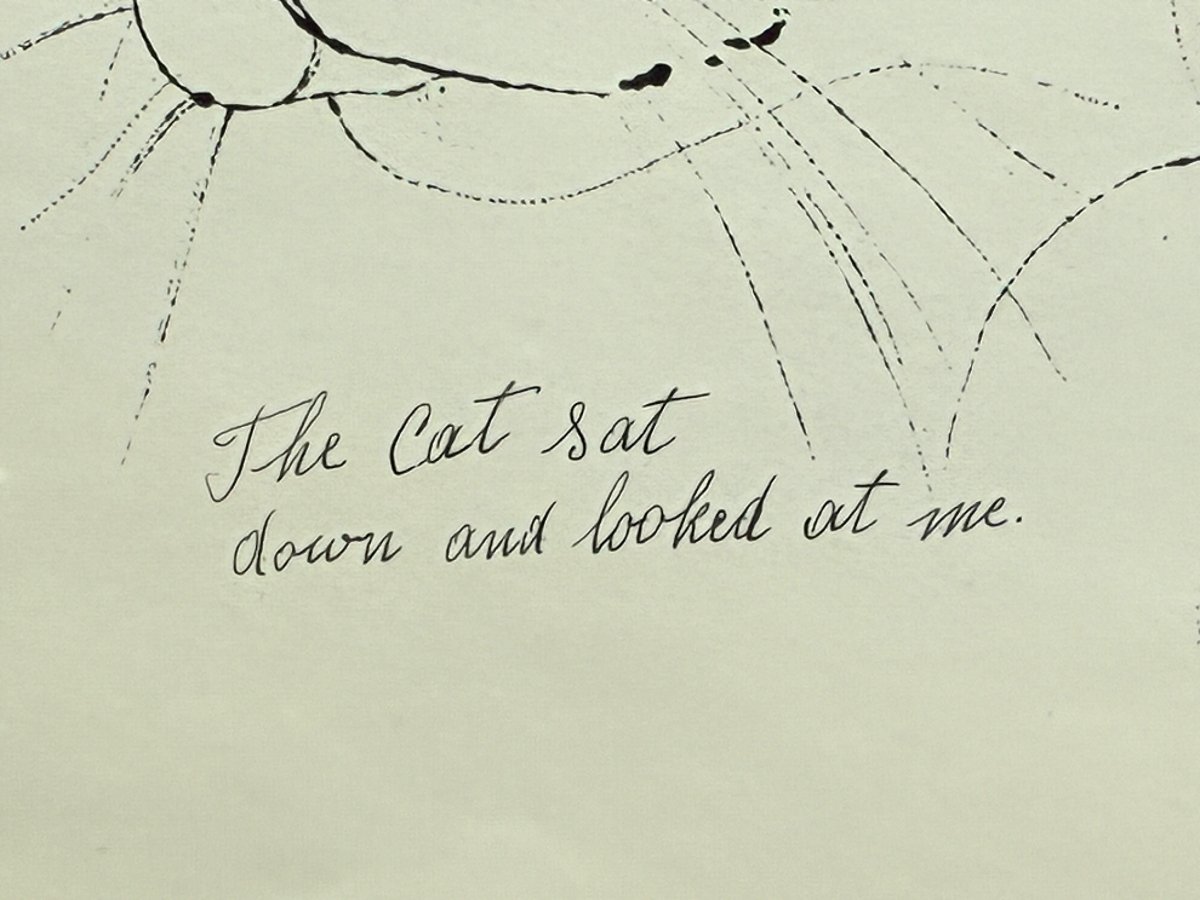 The Cat sat
down and looked at me.